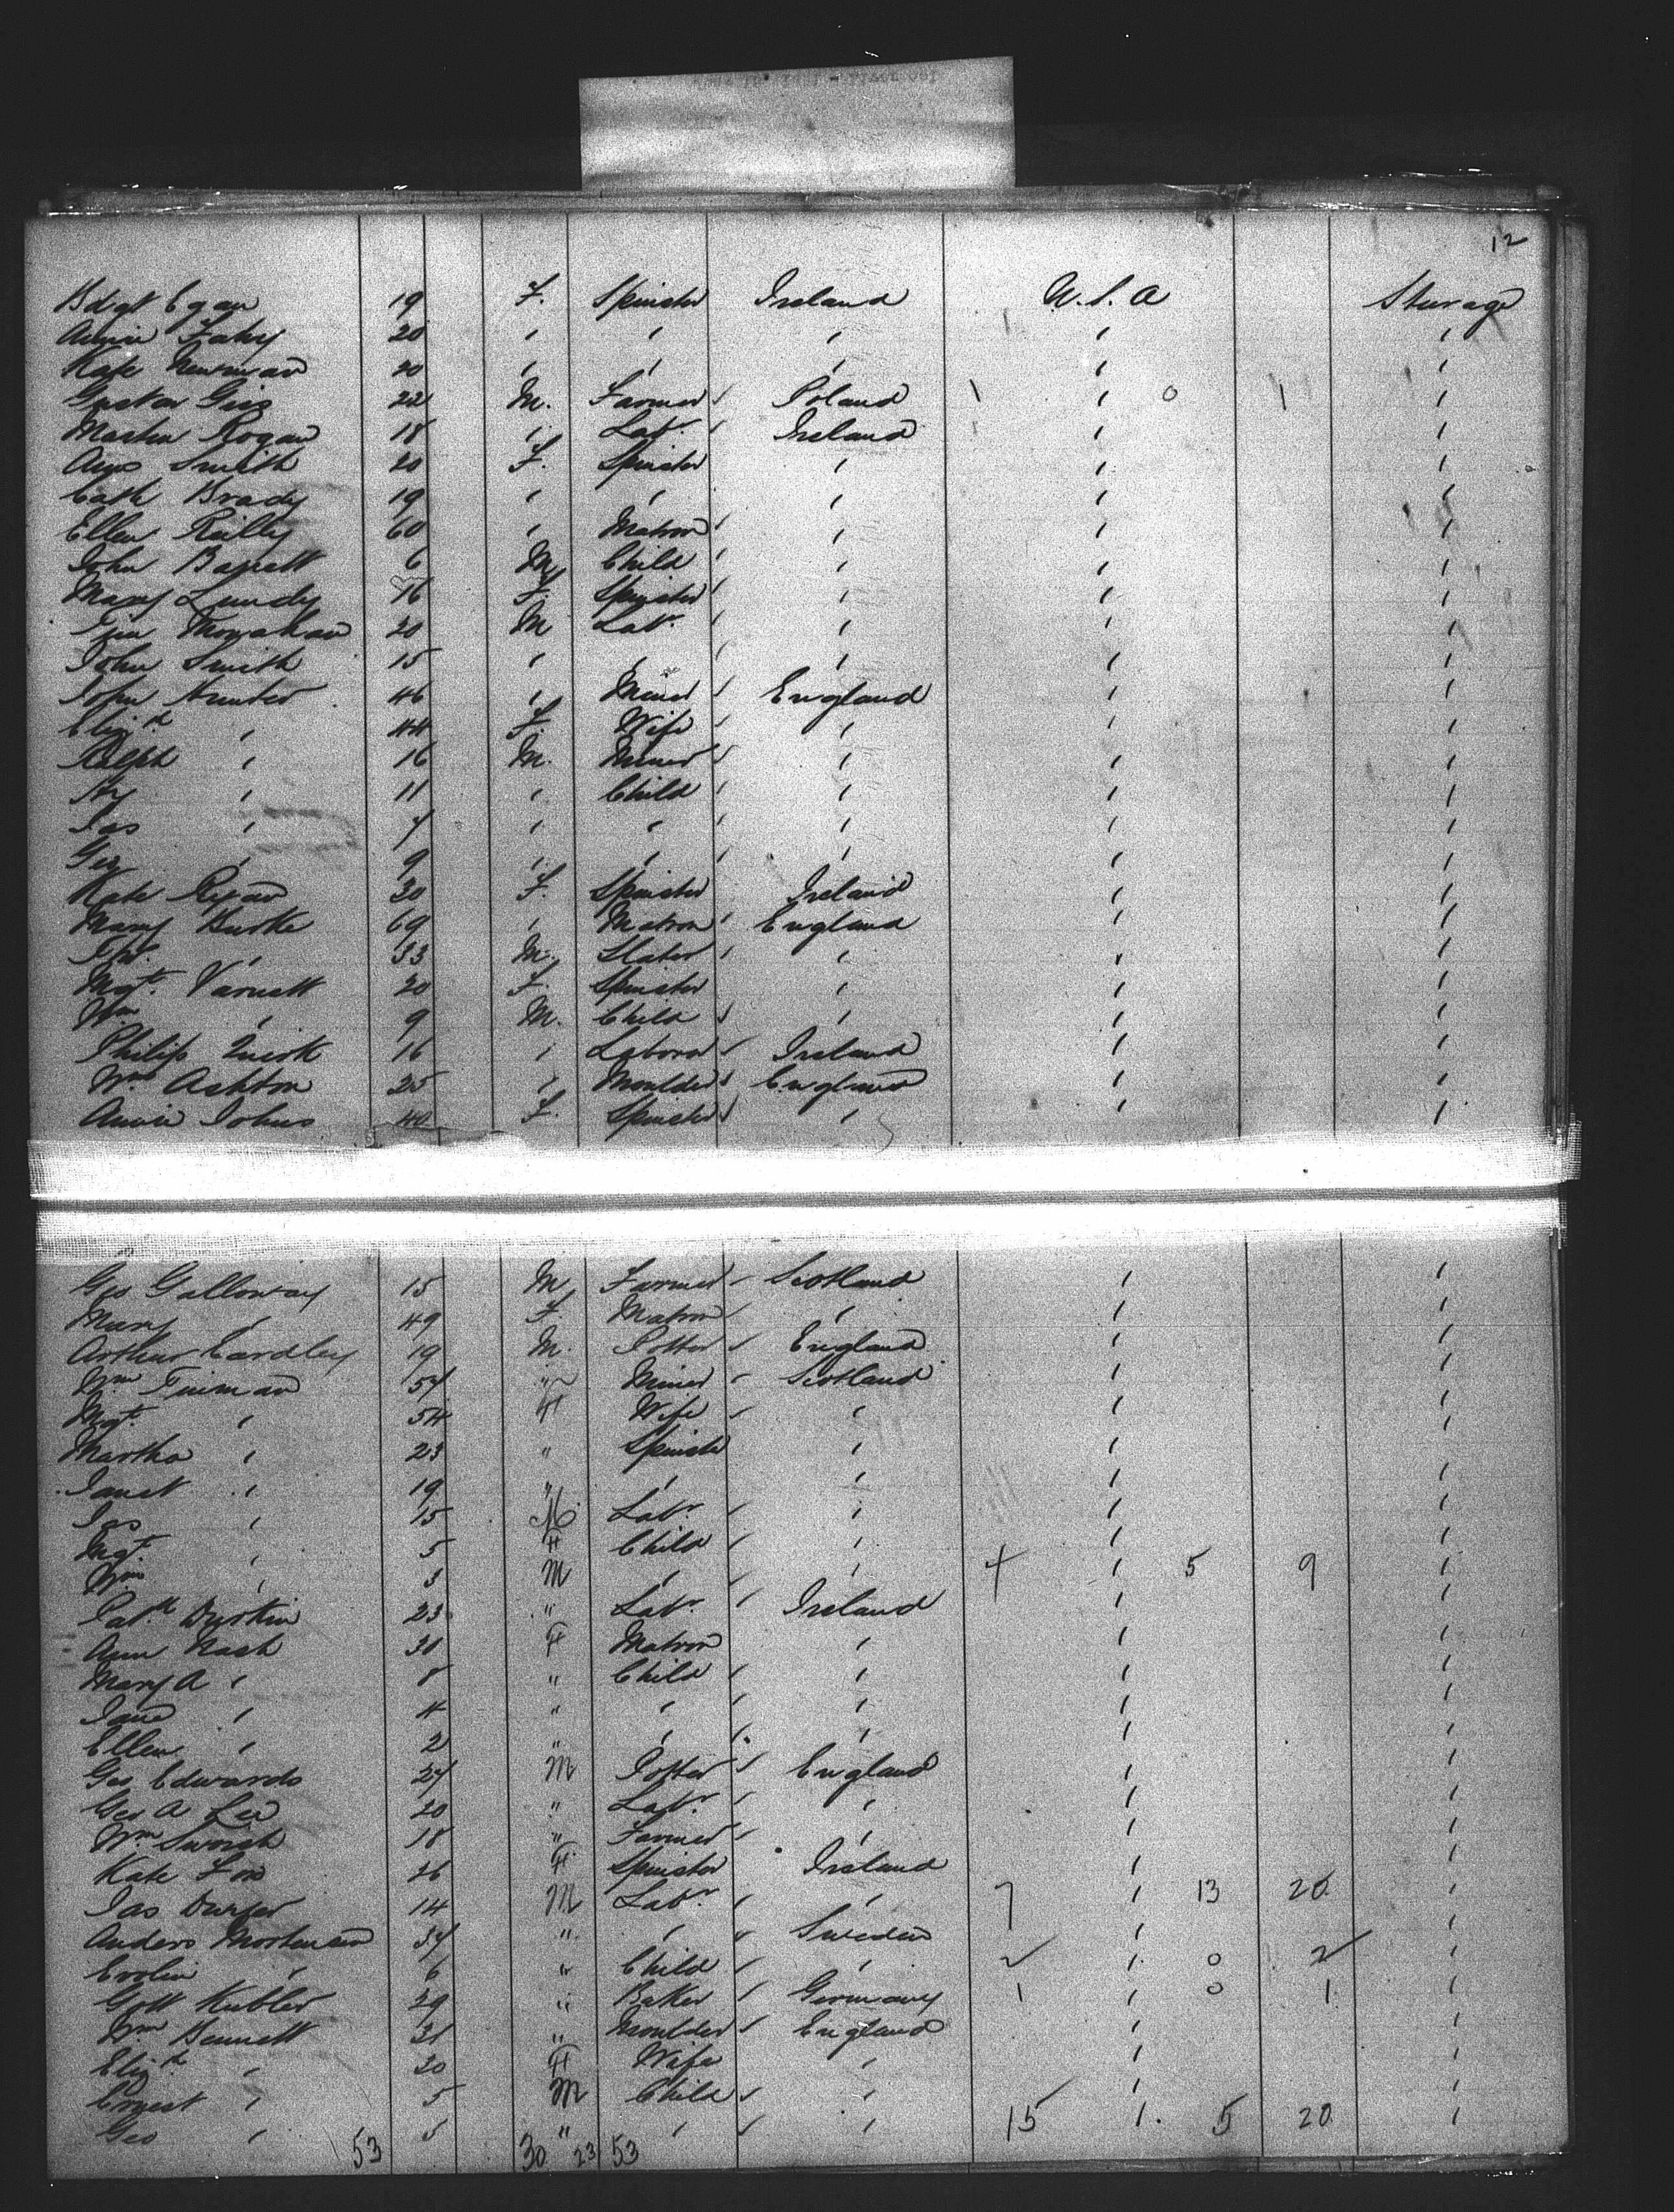 12
Bdgt Egan 19 F. Spinster Ireland U.S.A Steerage
Annie Fahy 20 " " " " "
Kate Newman 20 " " " " "
Gustav 22 M. Farmer Poland 1 " 0 1 "
Martin Rogan 18 " Labr. Ireland " "
Ann Smith 20 F. Spinster " " "
Cath Brady 19 " " " " "
Ellen Reilly 60 " Matron " " "
John Barrett 6 M Child " " "
Mary Lundy 16 F. Spinster " " "
Monahan 20 M Labr. " " "
John Smith 15 " " " " "
John Hunter 46 " Miner England " "
Elizth " 44 F. Wife " " "
Ralph " 16 M. Miner " " "
Hy " 11 " Child " " "
Jas " 7 " " " " "
Geo " 9 " " " " "
Kate Ryan 30 F. Spinster Ireland " "
Mary Burke 69 " Matron England " "
" 33 M. Slater " " "
Mgt. Varnett 20 F. Spinster " " "
Wm " 9 M. Child " " "
Philip Quirk 16 " Laborer Ireland " "
Wm Ashton 25 " Moulder England " "
Annie Johns 40 F. Spinster " " "
Geo Galloway 15 M Farmer Scotland " "
Mary " 49 F. Matron " " "
Arthur Eardley 19 M. Potter England " "
Wm 57 " Miner Scotland " "
Mgt. " 54 F Wife " " "
Martha " 23 " Spinster " " "
Janet " 19 " " " " "
Jas " 15 M Labr. " " "
Mgt. " 5 F Child " " "
Wm " 3 M " " 4 " 5 9 "
Patk Durkin 23 " Labr. Ireland " "
Ann Nash 30 F Matron " " "
Mary A " 8 " Child " " "
Jane " 4 " " " " "
Ellen " 2 " " " " "
Geo Edwards 27 M Potter England " "
Geo A Lee 20 " Labr. " " "
Wm 18 " Farmer " " "
Kate Fox 26 F Spinster Ireland " "
Jas 14 M Labr. " 7 " 13 20 "
Anders Mortensen 37 " " Sweden " "
" 6 " Child " 2 " 0 2 "
Gott Kubler 29 " Baker Germany 1 " 0 1 "
Wm Bennett 31 " Moulder England " "
Elizth " 30 F Wife " " "
Ernest " 5 M Child " " "
Geo " 5 " " " 15 " 5 20 "
53 30 23 53